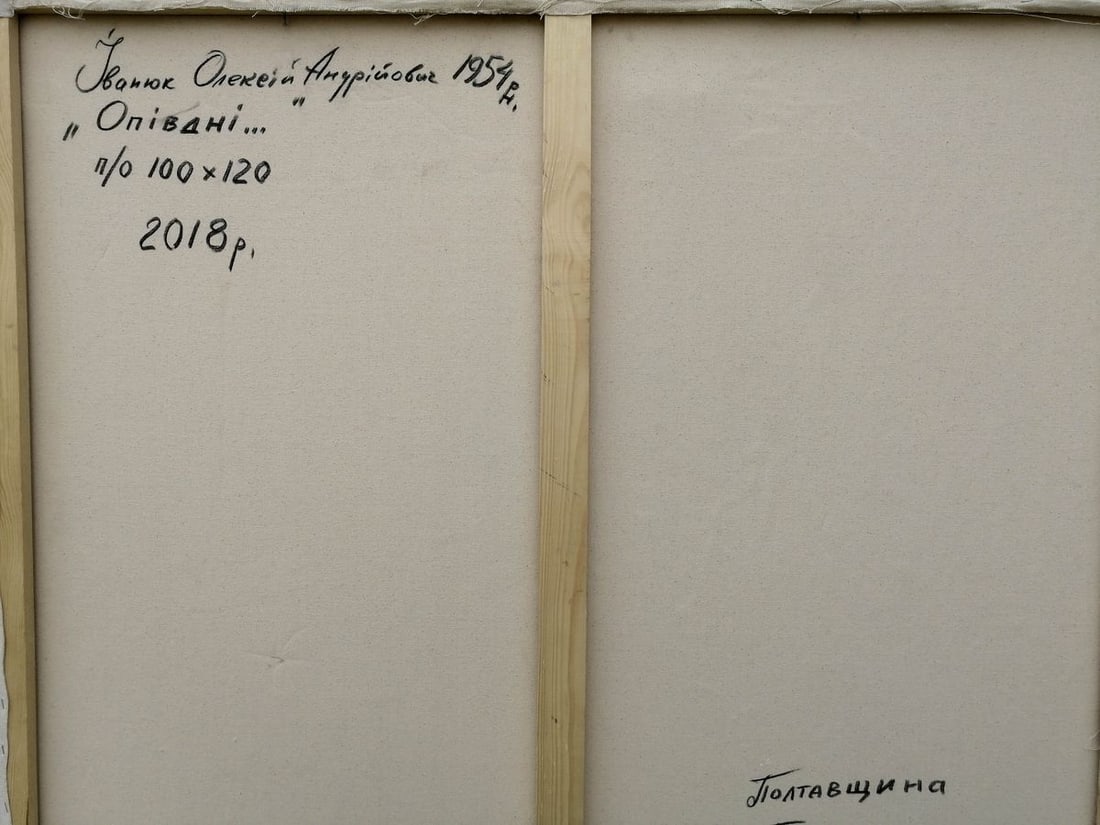 Іванюк Олексій Андрійович 1954 р.н.
„Опівдні..."
п/о 100×120
2018 р.
Полтавщина